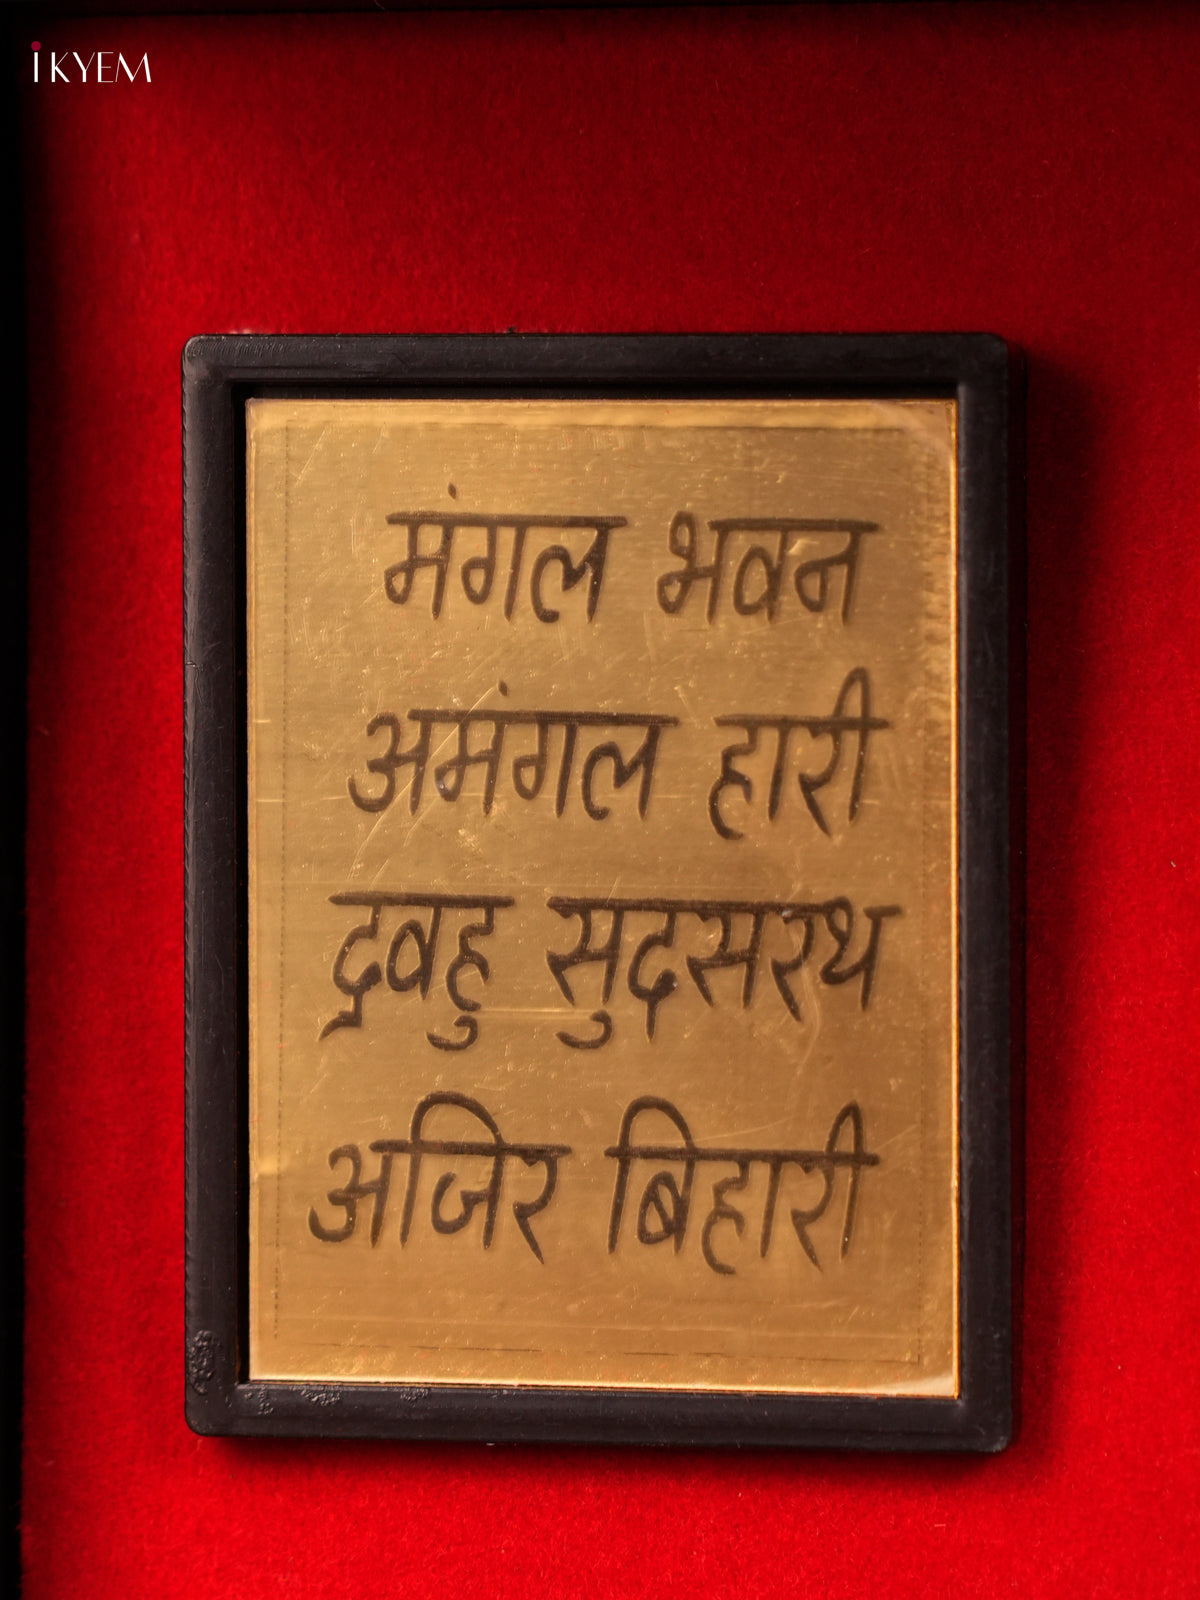 iKYEM
मंगल भवन
अमंगल हारी
द्रवहु सुदसरथ
अजिर बिहारी